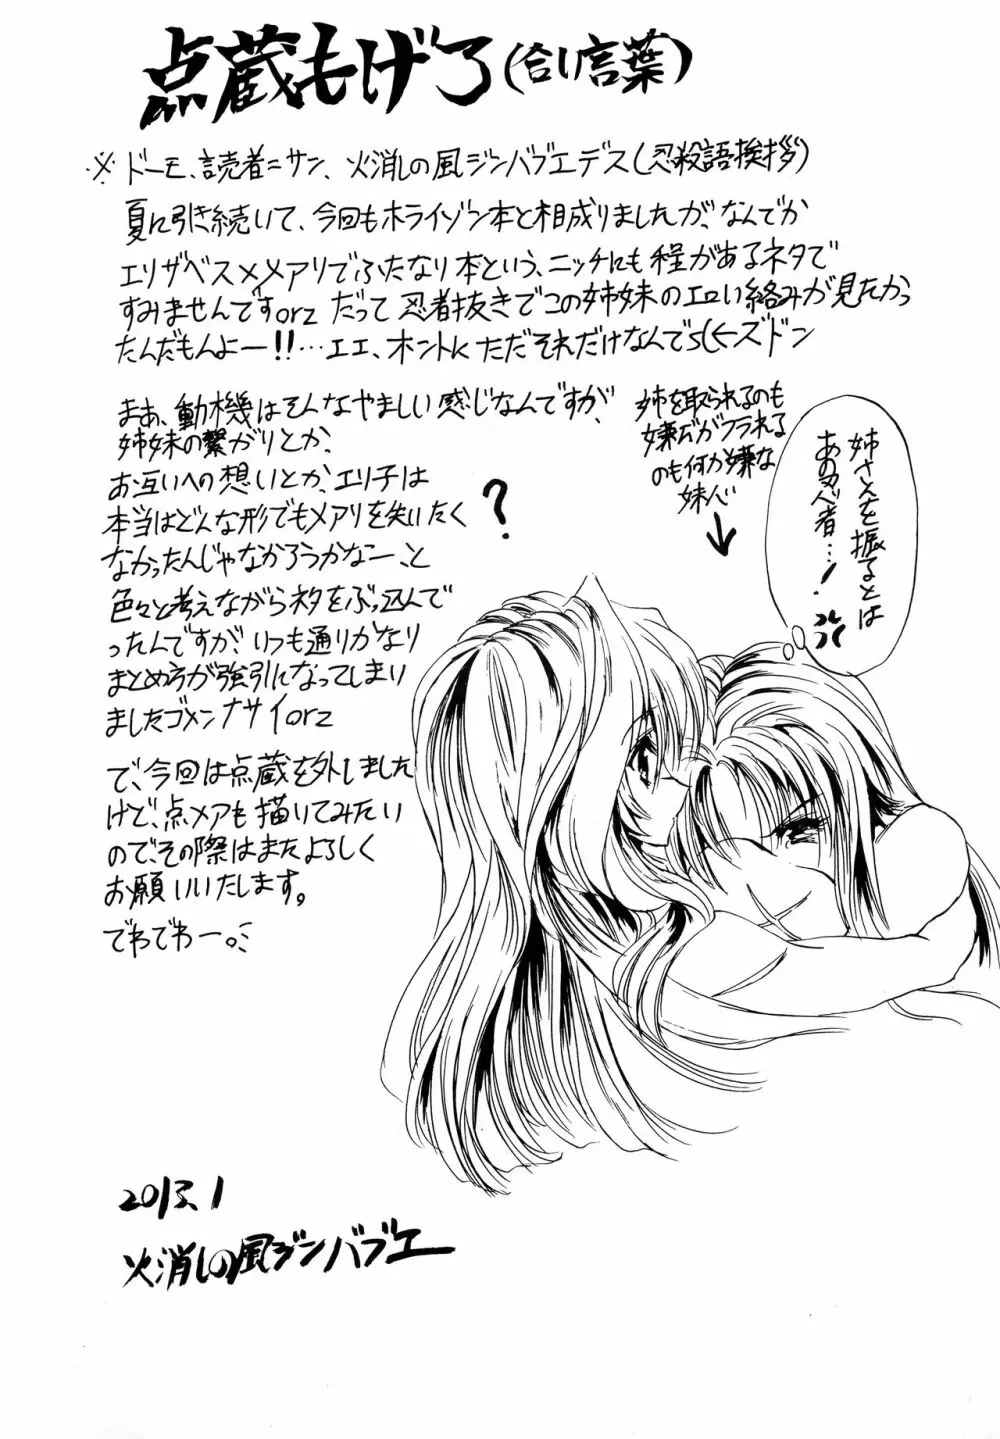 点蔵もげろ(合い言葉)
※ ドーモ、読者=サン、火消しの風ジンバブエデス(忍殺語挨拶)
夏に引き続いて、今回もホライゾン本と相成りましたが、なんでか
エリザベス×メアリでふたなり本という、ニッチにも程があるネタで
すみませんですorz だって忍者抜きでこの姉妹のエロい絡みが見たかっ
たんだもんよー!!…エエ、ホントにただそれだけなんでs(←ズドン
まあ、動機はそんなやましい感じなんですが、
姉妹の繋がりとか、
お互いへの想いとか、エリ子は
本当はどんな形でもメアリを失いたく
なかったんじゃなかろうかなー、と
色々と考えながらネタをぶっ込んで
ったんですが、いつも通りかなり
まとめ方が強引になってしまい
ましたゴメンナサイorz
で、今回は点蔵を外しました
けど、点メアも描いてみたい
ので、その際はまたよろしく
お願いいたします。
でわでわー。
?
姉を取られるのも
嫌だがフラれる
のも何か嫌な
妹心
↓
姉さんを振るとは
あの忍者…!
2013.1
火消しの風ジンバブエ